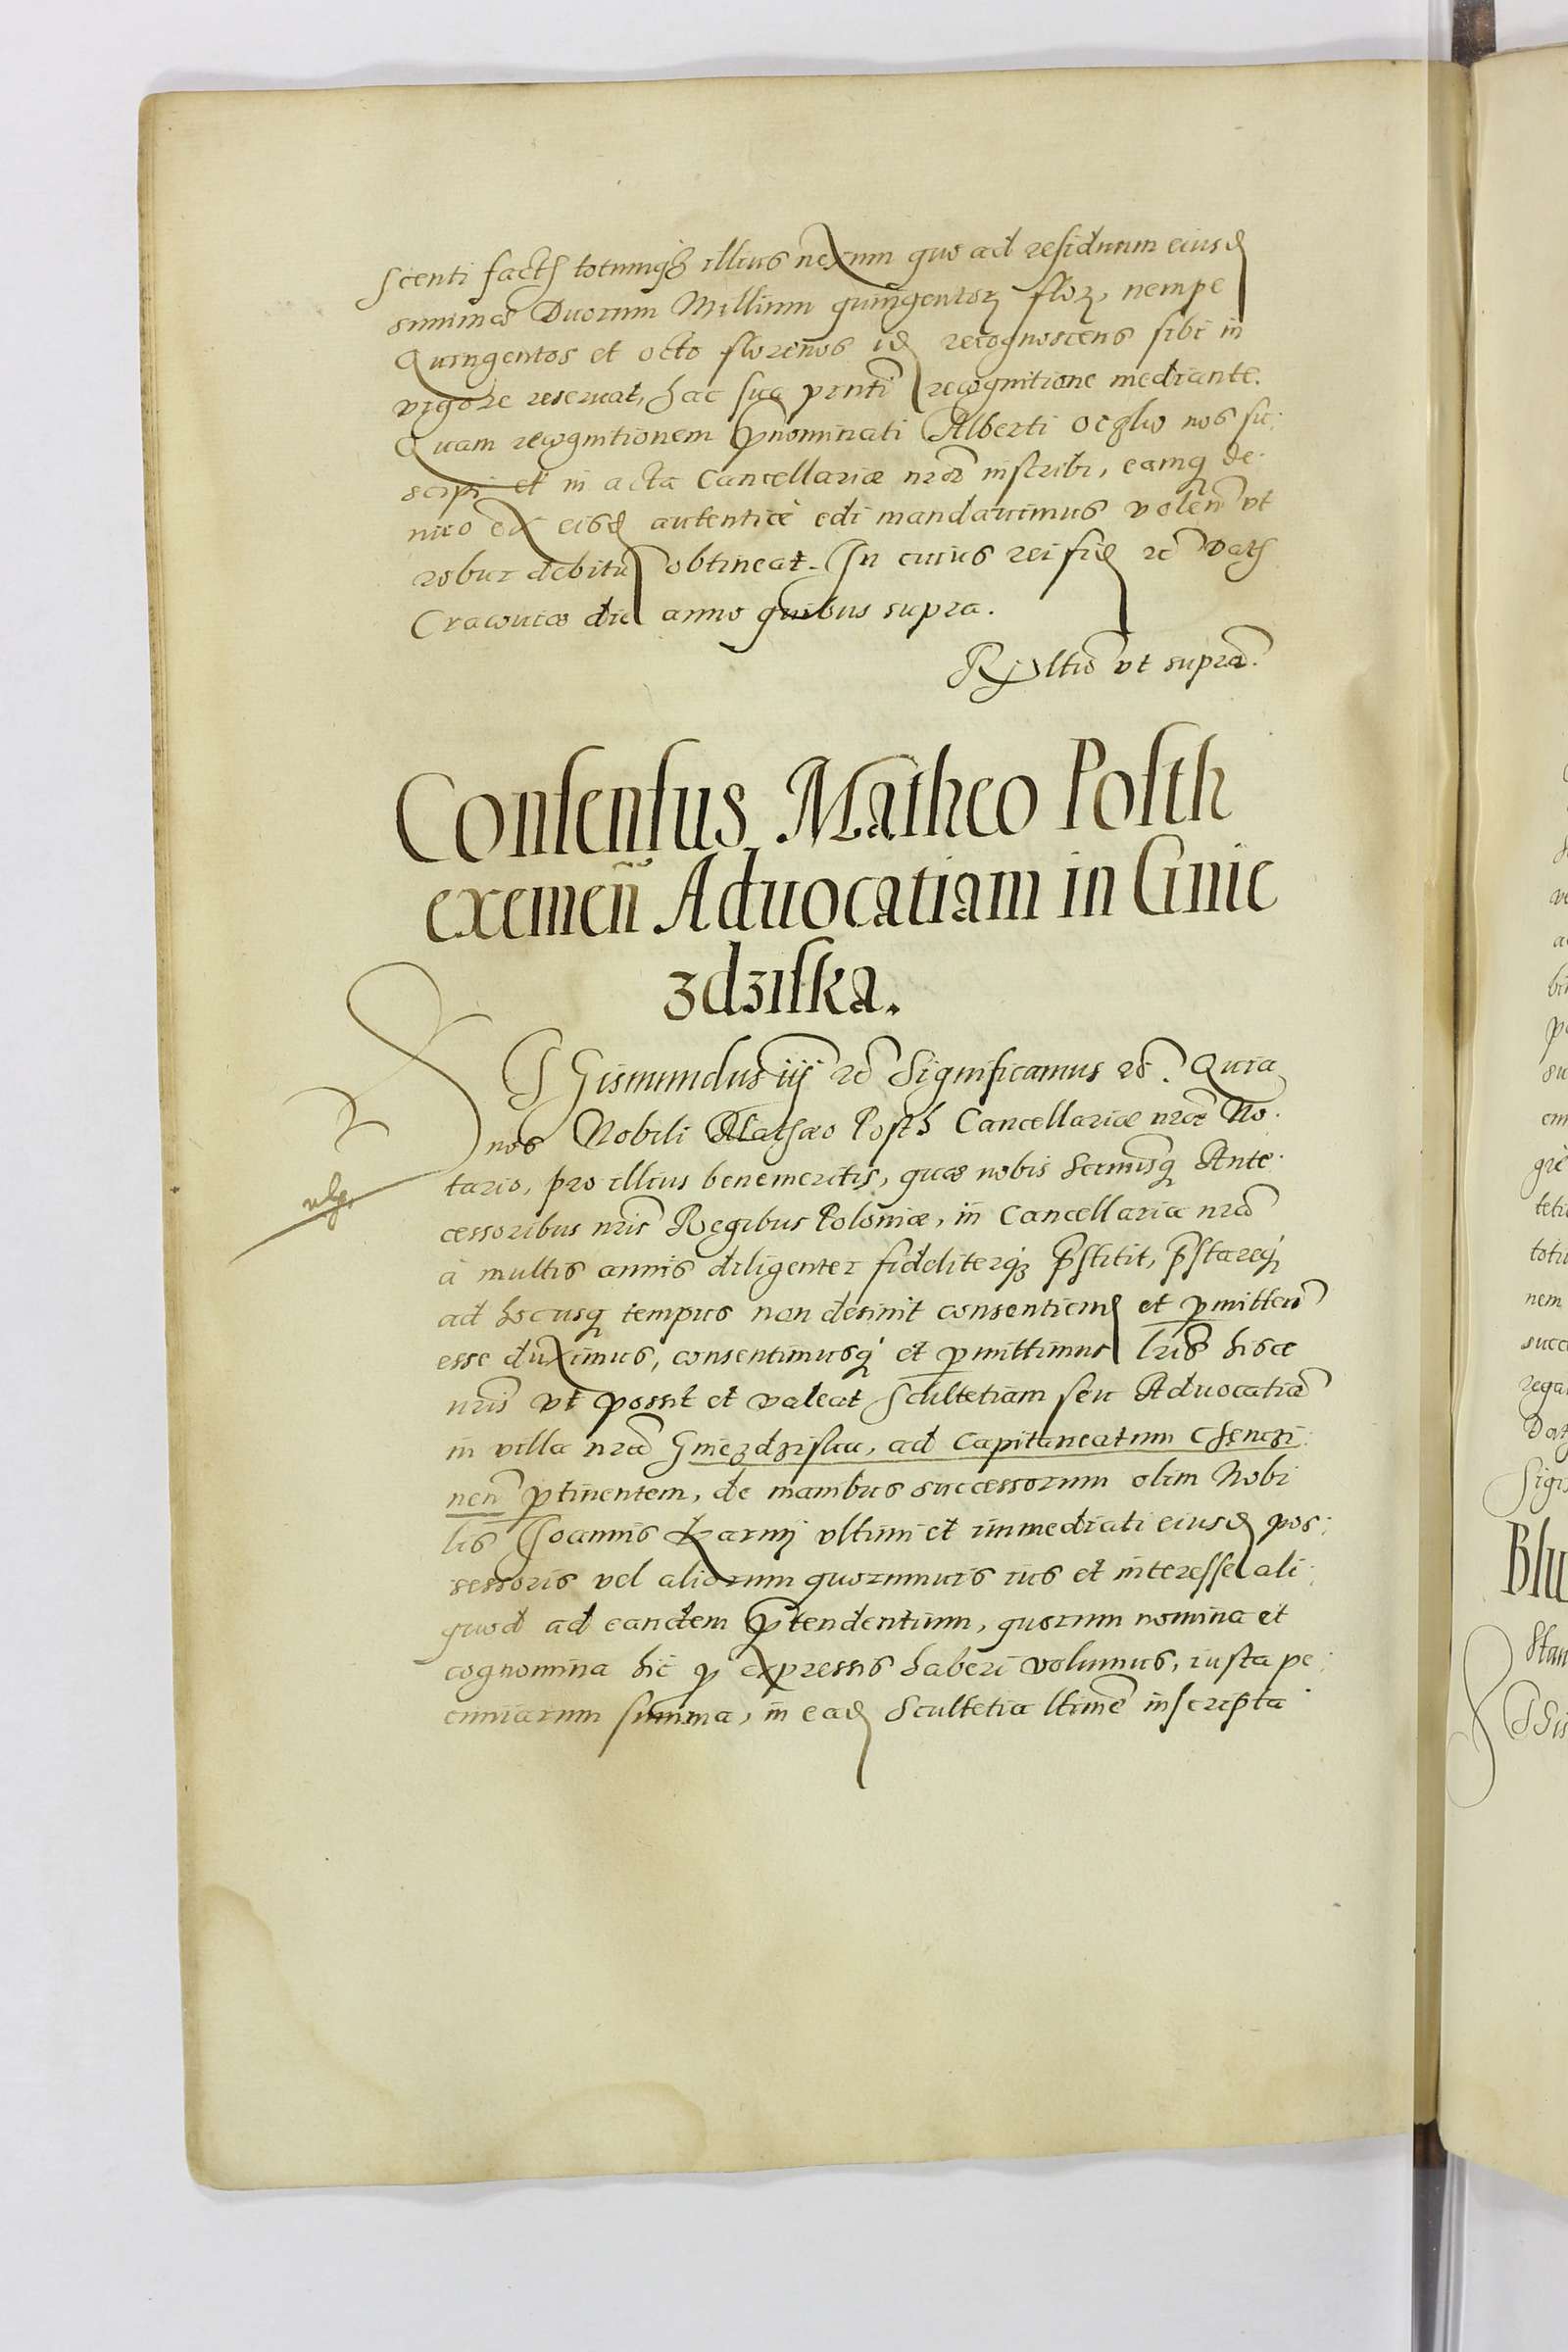 scenti facts totumq; illius nexum quo ad residuum eiusd
summæ Duorum Millium quingentor flor, nempe
Quingentos et octo florenos id recognoscens sibi in
vigore reseruat, hac sua pntī recognitione mediante.
Quam recognitionem pnominati Alberti Oczko nos su:
scipi et in acta Cancellariæ nræ inscribi, eamq de:
nuo ex eisd autenticè edi mandauimus volen vt
robur debitu obtineat. In cuius rei fid rc Dats
Cracouiæ die anno quibus supra.
Rltio vt supra.
Consensus Matheo Posth
eximen Aduocatiam in Gnie
zdziska.
SIGismundus iij rc Significamus rc. Quia
nos Nobili Mathæo Posth Cancellariæ nræ No:
tario, pro illius benemeritis, quæ nobis Sermisq Ante:
cessoribus nris Regibus Poloniæ, in Cancellaria nra
à multis annis diligenter fideliterq; pstitit, pstareq;
ad hocusq tempus non desinit consentiend et pmitten
esse duximus, consentimusq et pmittimus lris hisce
nris vt possit et valeat Scultetiam seu Aduocatia
in villa nra Gniezdziska, ad Capitaneatum Chenczi:
nen ptinentem, de manibus successorum olim Nobi
lis Joannis Karnij vltimi et immediati eiusd pos:
sessoris vel aliorum quorumuis ius et interesse ali:
quod ad eandem ptendentium, quorum nomina et
cognomina hic p expressis haberi volumus, iusta pe:
cuniarum summa, in ead Scultetia ltime inscripta